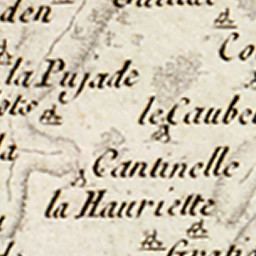 den
la Pujade
le Caube
la
Cantinelle
la Hauriette